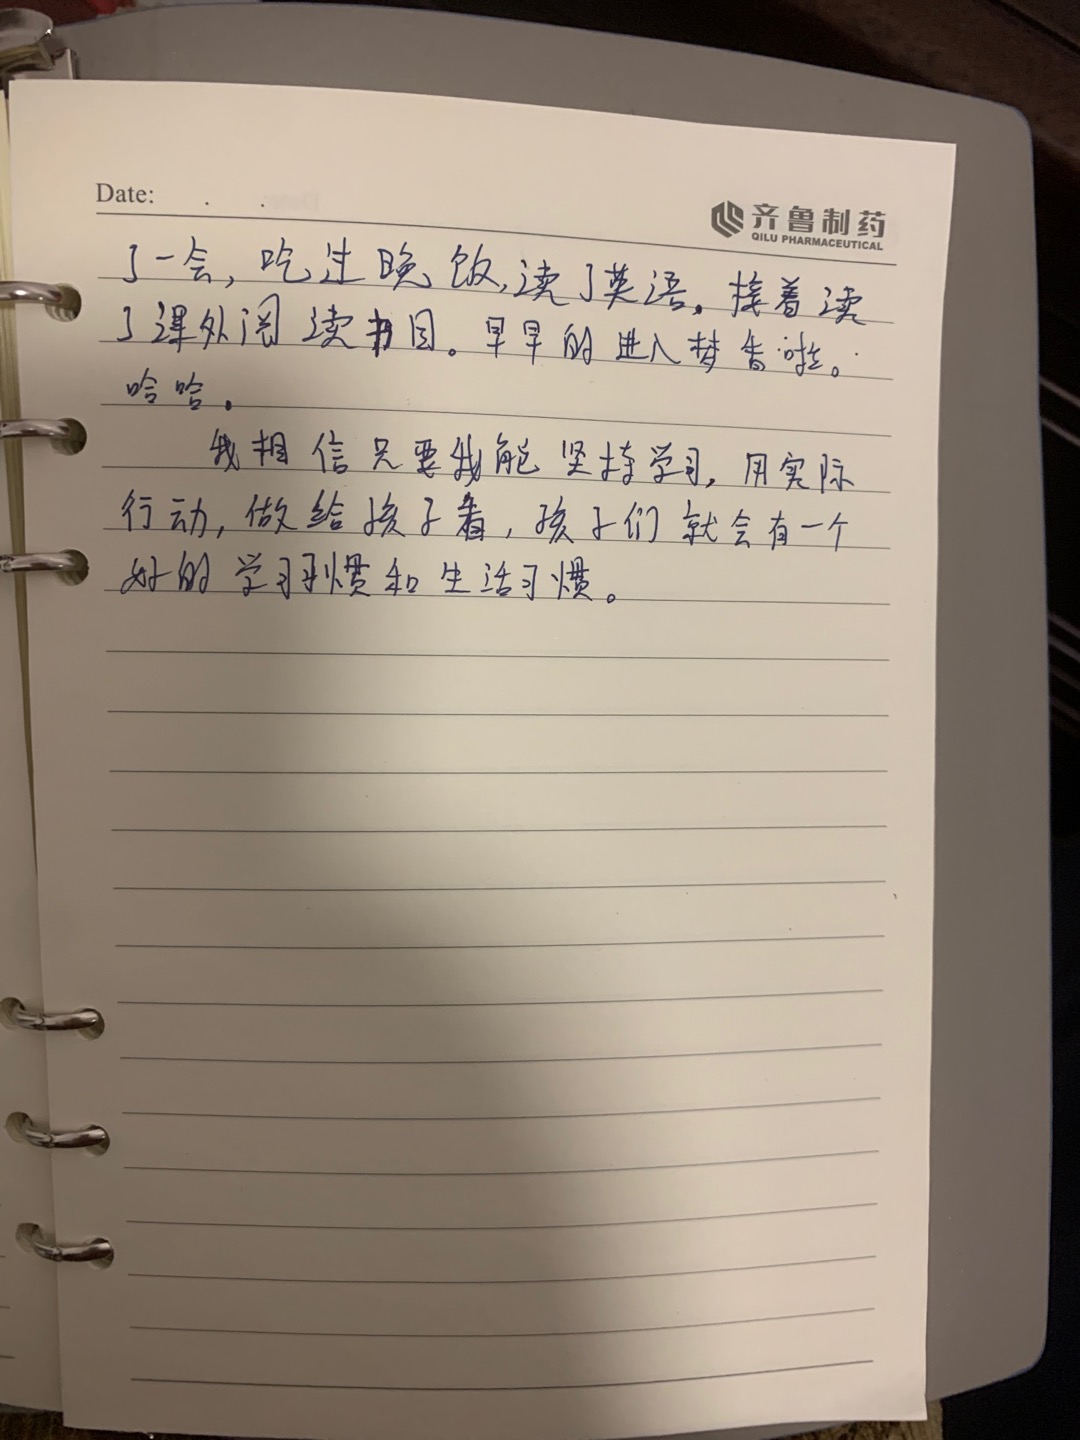 Date: . .
齐鲁制药
QILU PHARMACEUTICAL
了一会，吃过晚饭，读了英语。接着读
了课外阅读书目。早早的进入梦香啦。
哈哈。
我相信只要我能坚持学习，用实际
行动，做给孩子看，孩子们就会有一个
好的学习习惯和生活习惯。